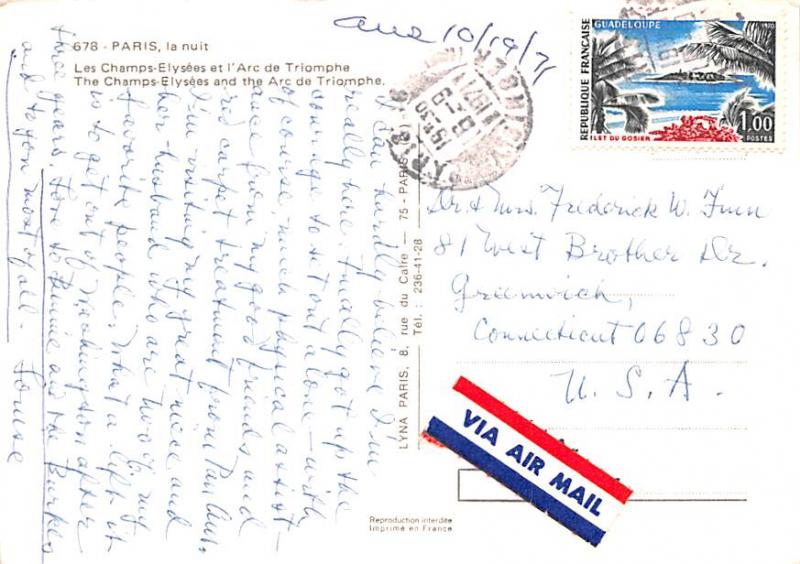 ans 10/19/71
678 - PARIS, la nuit
Les Champs-Elysées et l'Arc de Triomphe
The Champs-Elysées and the Arc de Triomphe.
I can hardly believe I'm
really here. Finally got up the
courage to set out alone – with
of course, much physical assist-
ance from my good friends and
red carpet treatment from Pan Am.
I'm visiting my great niece and
her husband who are two of my
favorite people. What a lift it
is to get out of Washington after
three years. Love to and the Burkes
and to you most of all - Louise
LYNA PARIS, 8, rue du Caire — 75 - PARIS
Tél. : 236-41-28
GUADELOUPE
1970
RÉPUBLIQUE FRANÇAISE
ILET DU GOSIER
1.00
POSTES
Dr. & Mrs. Frederick W. Finn
81 West Brother Dr.
Greenwich,
Connecticut 06830
U.S.A.
VIA AIR MAIL
Reproduction interdite
Imprimé en France